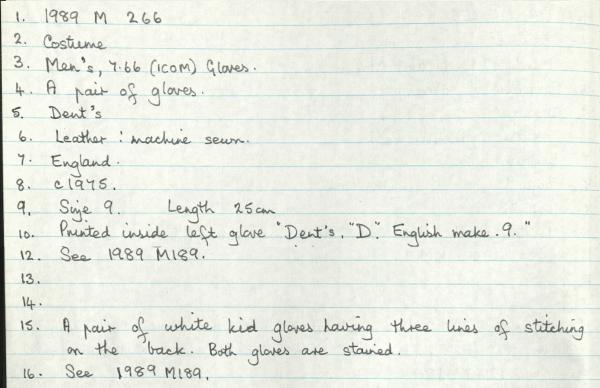 1. 1989 M 266
2. Costume
3. Men's, 7.66 (ICOM) Gloves.
4. A pair of gloves.
5. Dent's
6. Leather : machine sewn.
7. England.
8. c1975.
9. Size 9. Length 25cm
10. Printed inside left glove "Dent's. "D". English make. 9."
12. See 1989 M189.
13.
14.
15. A pair of white kid gloves having three lines of stitching
on the back. Both gloves are stained.
16. See 1989 M189.